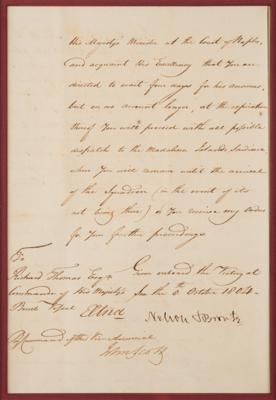 His Majestys Minister at the Court of Naples,
and acquaint His Excellency that You are
directed to wait four days for his answer,
but on no account longer, at the expiration
thereof You will proceed with all possible
dispatch to the Madalena Islands Sardinia
where You will remain until the arrival
of the Squadron (in the event of its
not being there) or You receive my orders
for Your further proceedings
To
Richard Thomas Esqr
Commander of His Majestys
Bomb Vessel Ætna
Given onboard the Victory at
Sea the 6th October 1804
Nelson & Bronte
By Command of the Vice Admiral
John Scott